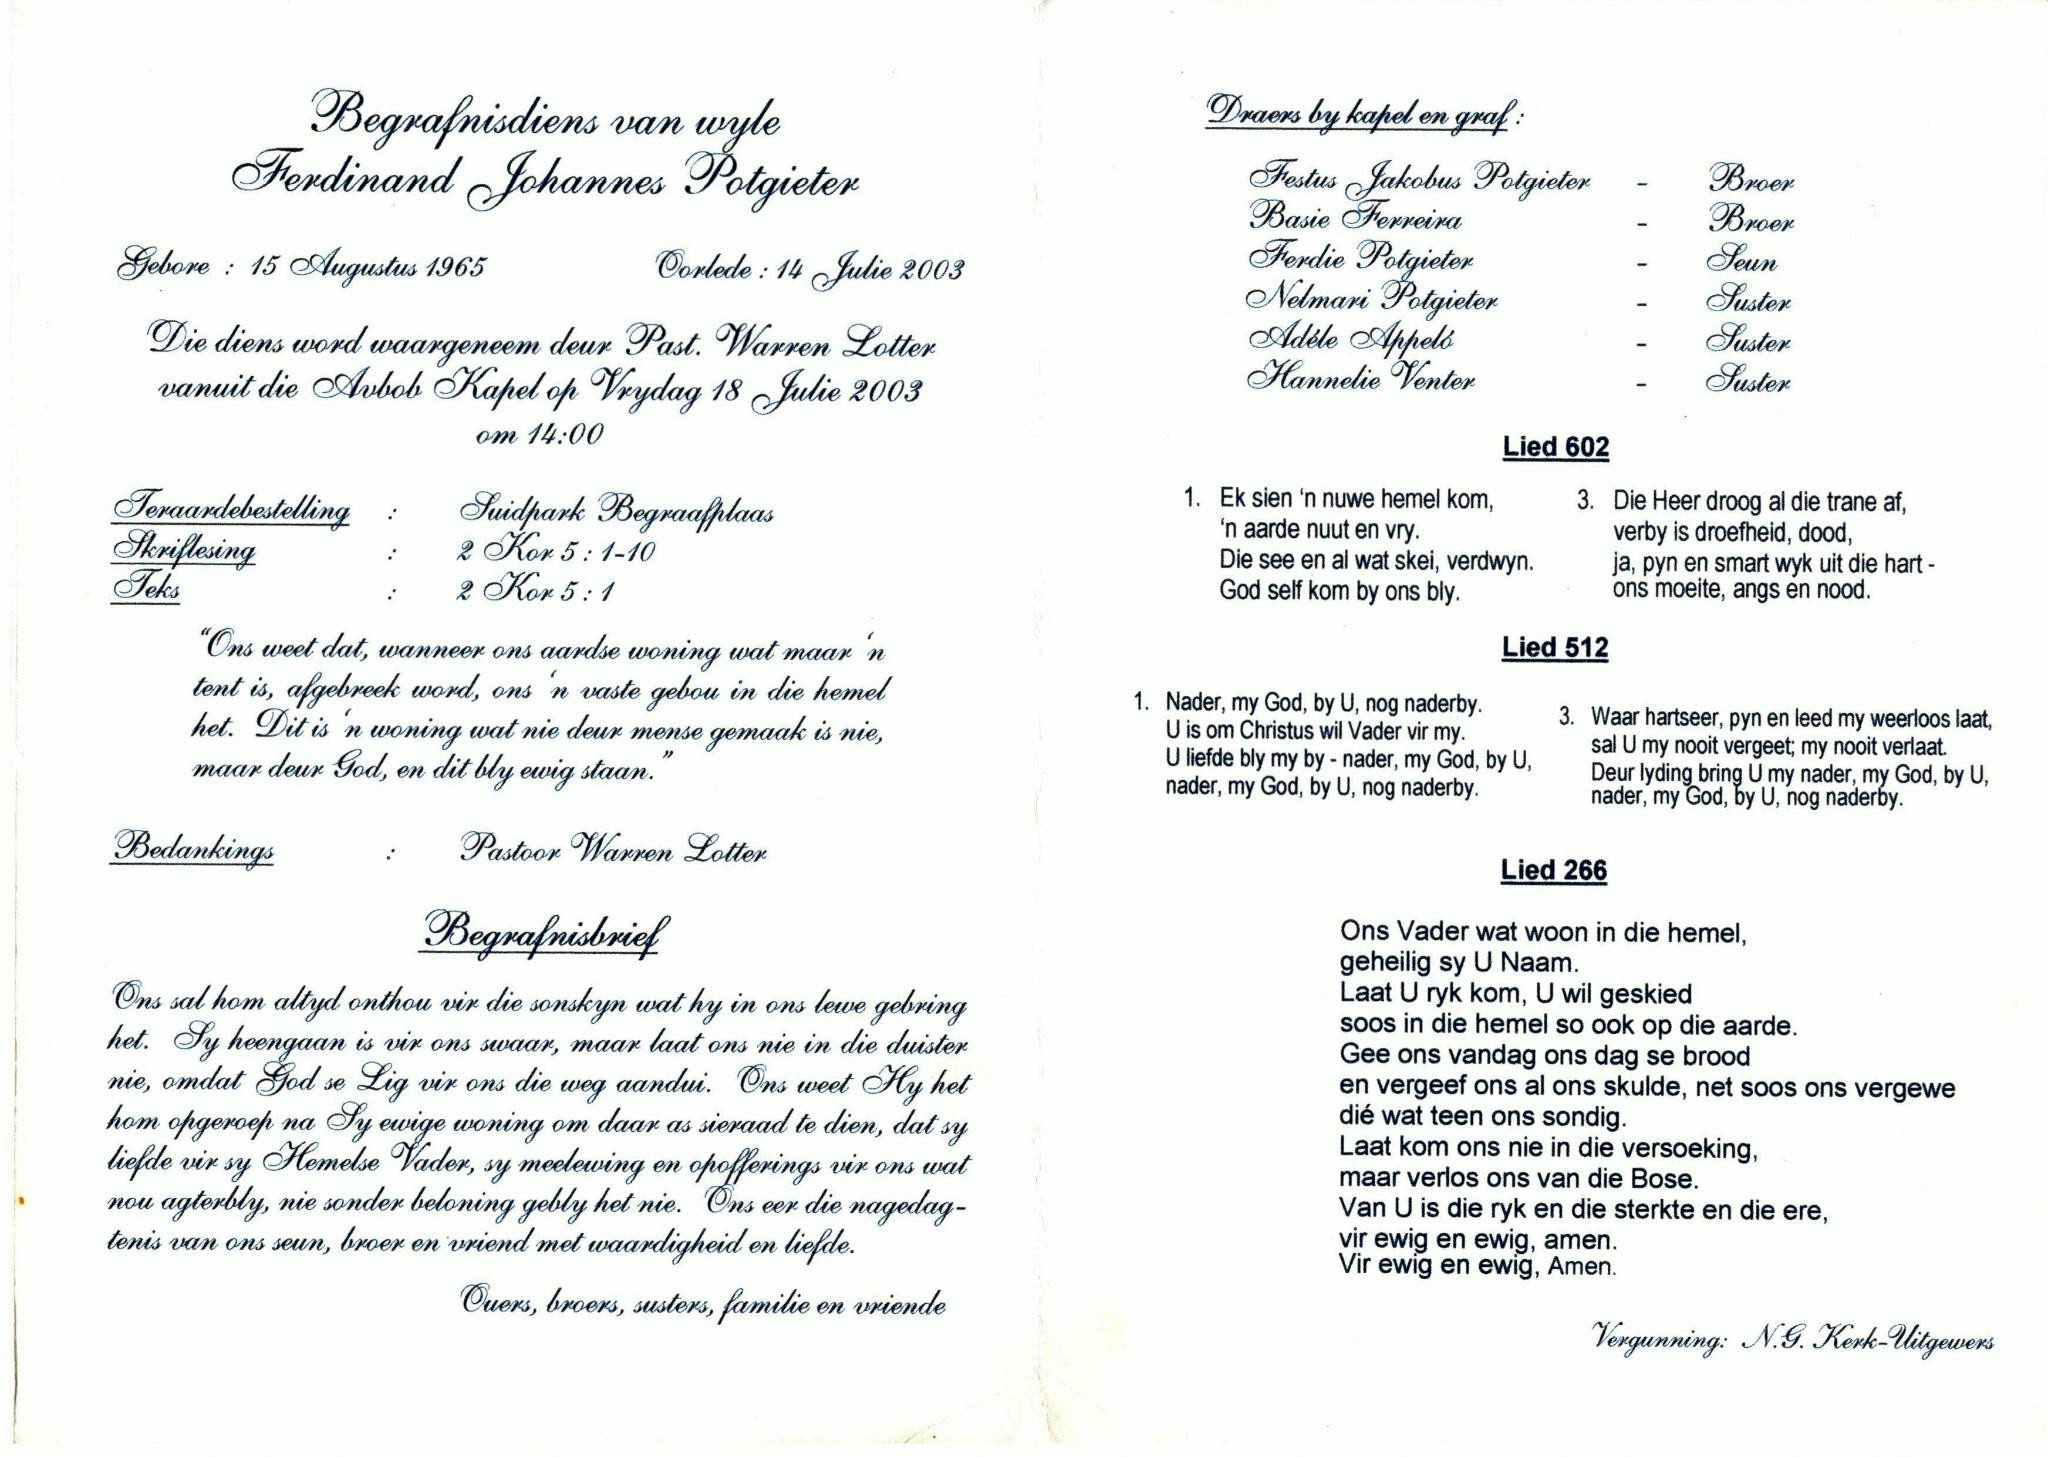 Begrafnisdiens van wyle
Ferdinand Johannes Potgieter
Gebore : 15 Augustus 1965 Oorlede : 14 Julie 2003
Die diens word waargeneem deur Past. Warren Lotter
vanuit die Avbob Kapel op Vrydag 18 Julie 2003
om 14:00
Teraardebestelling : Suidpark Begraafplaas
Skriflesing : 2 Kor 5 : 1-10
Teks : 2 Kor 5 : 1
“Ons weet dat, wanneer ons aardse woning wat maar ‘n
tent is, afgebreek word, ons ‘n vaste gebou in die hemel
het. Dit is ‘n woning wat nie deur mense gemaak is nie,
maar deur God, en dit bly ewig staan.”
Bedankings : Pastoor Warren Lotter
Begrafnisbrief
Ons sal hom altyd onthou vir die sonskyn wat hy in ons lewe gebring
het. Sy heengaan is vir ons swaar, maar laat ons nie in die duister
nie, omdat God se Lig vir ons die weg aandui. Ons weet Hy het
hom opgeroep na Sy ewige woning om daar as sieraad te dien, dat sy
liefde vir sy Hemelse Vader, sy meelewing en opofferings vir ons wat
nou agterbly, nie sonder beloning gebly het nie. Ons eer die nagedag-
tenis van ons seun, broer en vriend met waardigheid en liefde.
Ouers, broers, susters, familie en vriende
Draers by kapel en graf :
Festus Jakobus Potgieter - Broer
Basie Ferreira - Broer
Ferdie Potgieter - Seun
Nelmari Potgieter - Suster
Adéle Appeló - Suster
Hannelie Venter - Suster
Lied 602
1. Ek sien ‘n nuwe hemel kom,
‘n aarde nuut en vry.
Die see en al wat skei, verdwyn.
God self kom by ons bly.
3. Die Heer droog al die trane af,
verby is droefheid, dood,
ja, pyn en smart wyk uit die hart -
ons moeite, angs en nood.
Lied 512
1. Nader, my God, by U, nog naderby.
U is om Christus wil Vader vir my.
U liefde bly my by - nader, my God, by U,
nader, my God, by U, nog naderby.
3. Waar hartseer, pyn en leed my weerloos laat,
sal U my nooit vergeet; my nooit verlaat.
Deur lyding bring U my nader, my God, by U,
nader, my God, by U, nog naderby.
Lied 266
Ons Vader wat woon in die hemel,
geheilig sy U Naam.
Laat U ryk kom, U wil geskied
soos in die hemel so ook op die aarde.
Gee ons vandag ons dag se brood
en vergeef ons al ons skulde, net soos ons vergewe
dié wat teen ons sondig.
Laat kom ons nie in die versoeking,
maar verlos ons van die Bose.
Van U is die ryk en die sterkte en die ere,
vir ewig en ewig, amen.
Vir ewig en ewig, Amen.
Vergunning: N.G. Kerk-Uitgewers